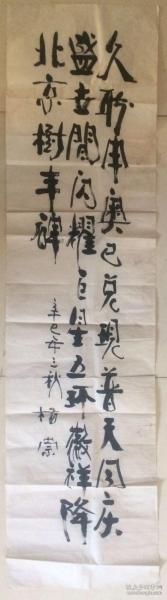 久盼申奥已兑现普天同庆
盛世闻闪耀巨星五环徽祥降
北京树丰碑
辛巳年之秋 杨崇